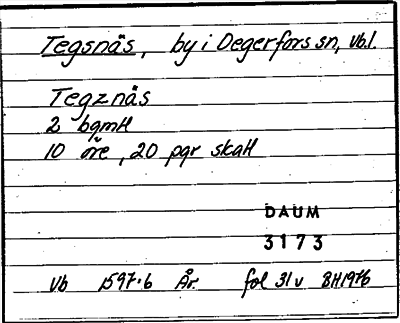 Tegsnäs, by i Degerfors sn, Vb.l.
Tegznäs
2 bgmtl
10 öre, 20 pgr skatt
DAUM
3173
Vb 1597:6 År fol 31v BH1976